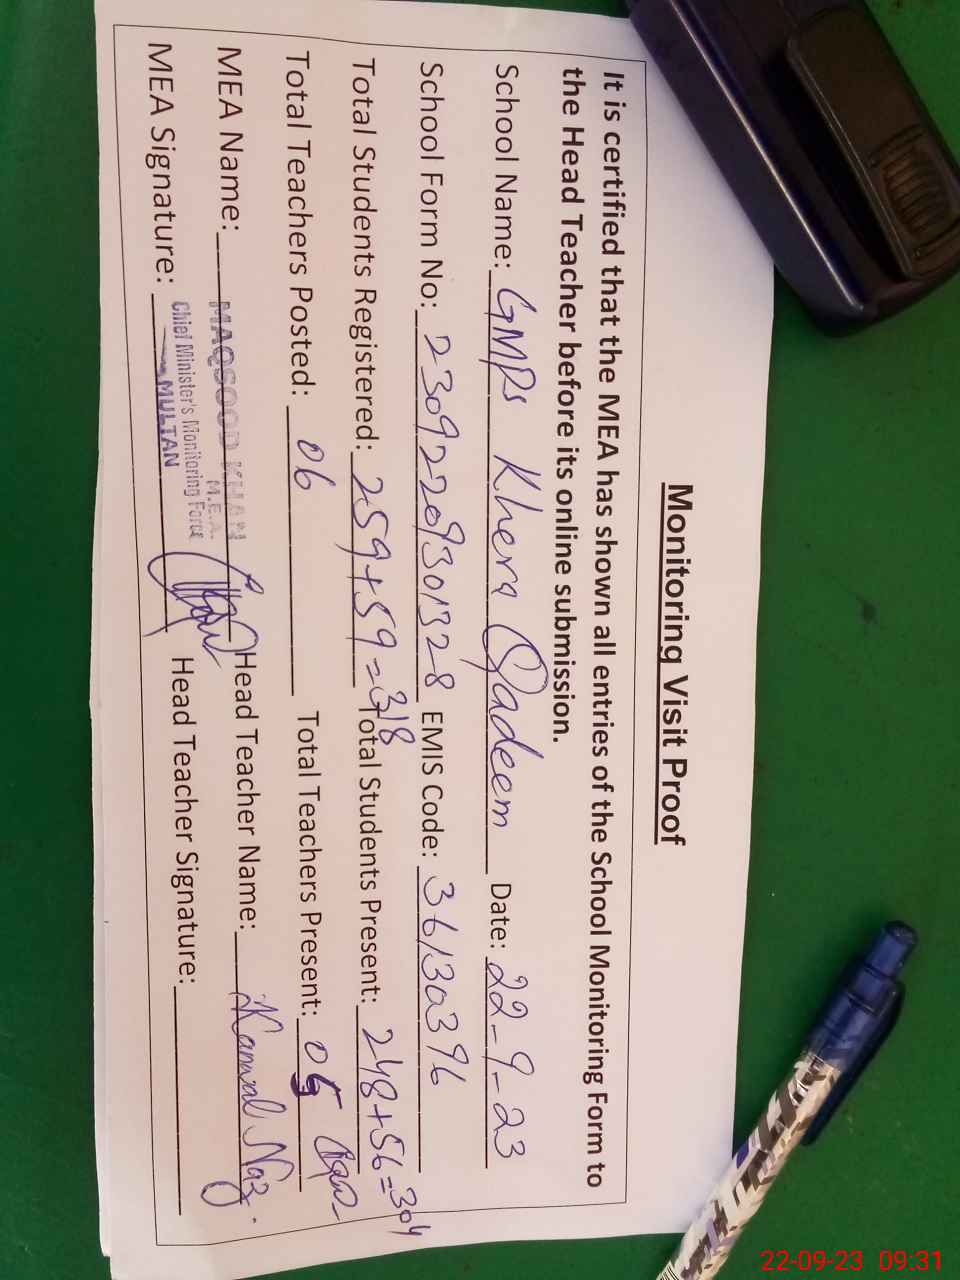 Monitoring Visit Proof
It is certified that the MEA has shown all entries of the School Monitoring Form to
the Head Teacher before its online submission.
School Name: GMPS Khera Qadeem Date: 22-9-23
School Form No: 23092209301328 EMIS Code: 36130396
Total Students Registered: 259+59=318 Total Students Present: 248+56=304
Total Teachers Posted: 06 Total Teachers Present: 05
MEA Name: MAQSOOD KHAN Head Teacher Name: Kanwal Naz.
M.E.A.
Chief Minister's Monitoring Force
MEA Signature: MULTAN Head Teacher Signature:
22-09-23 09:31